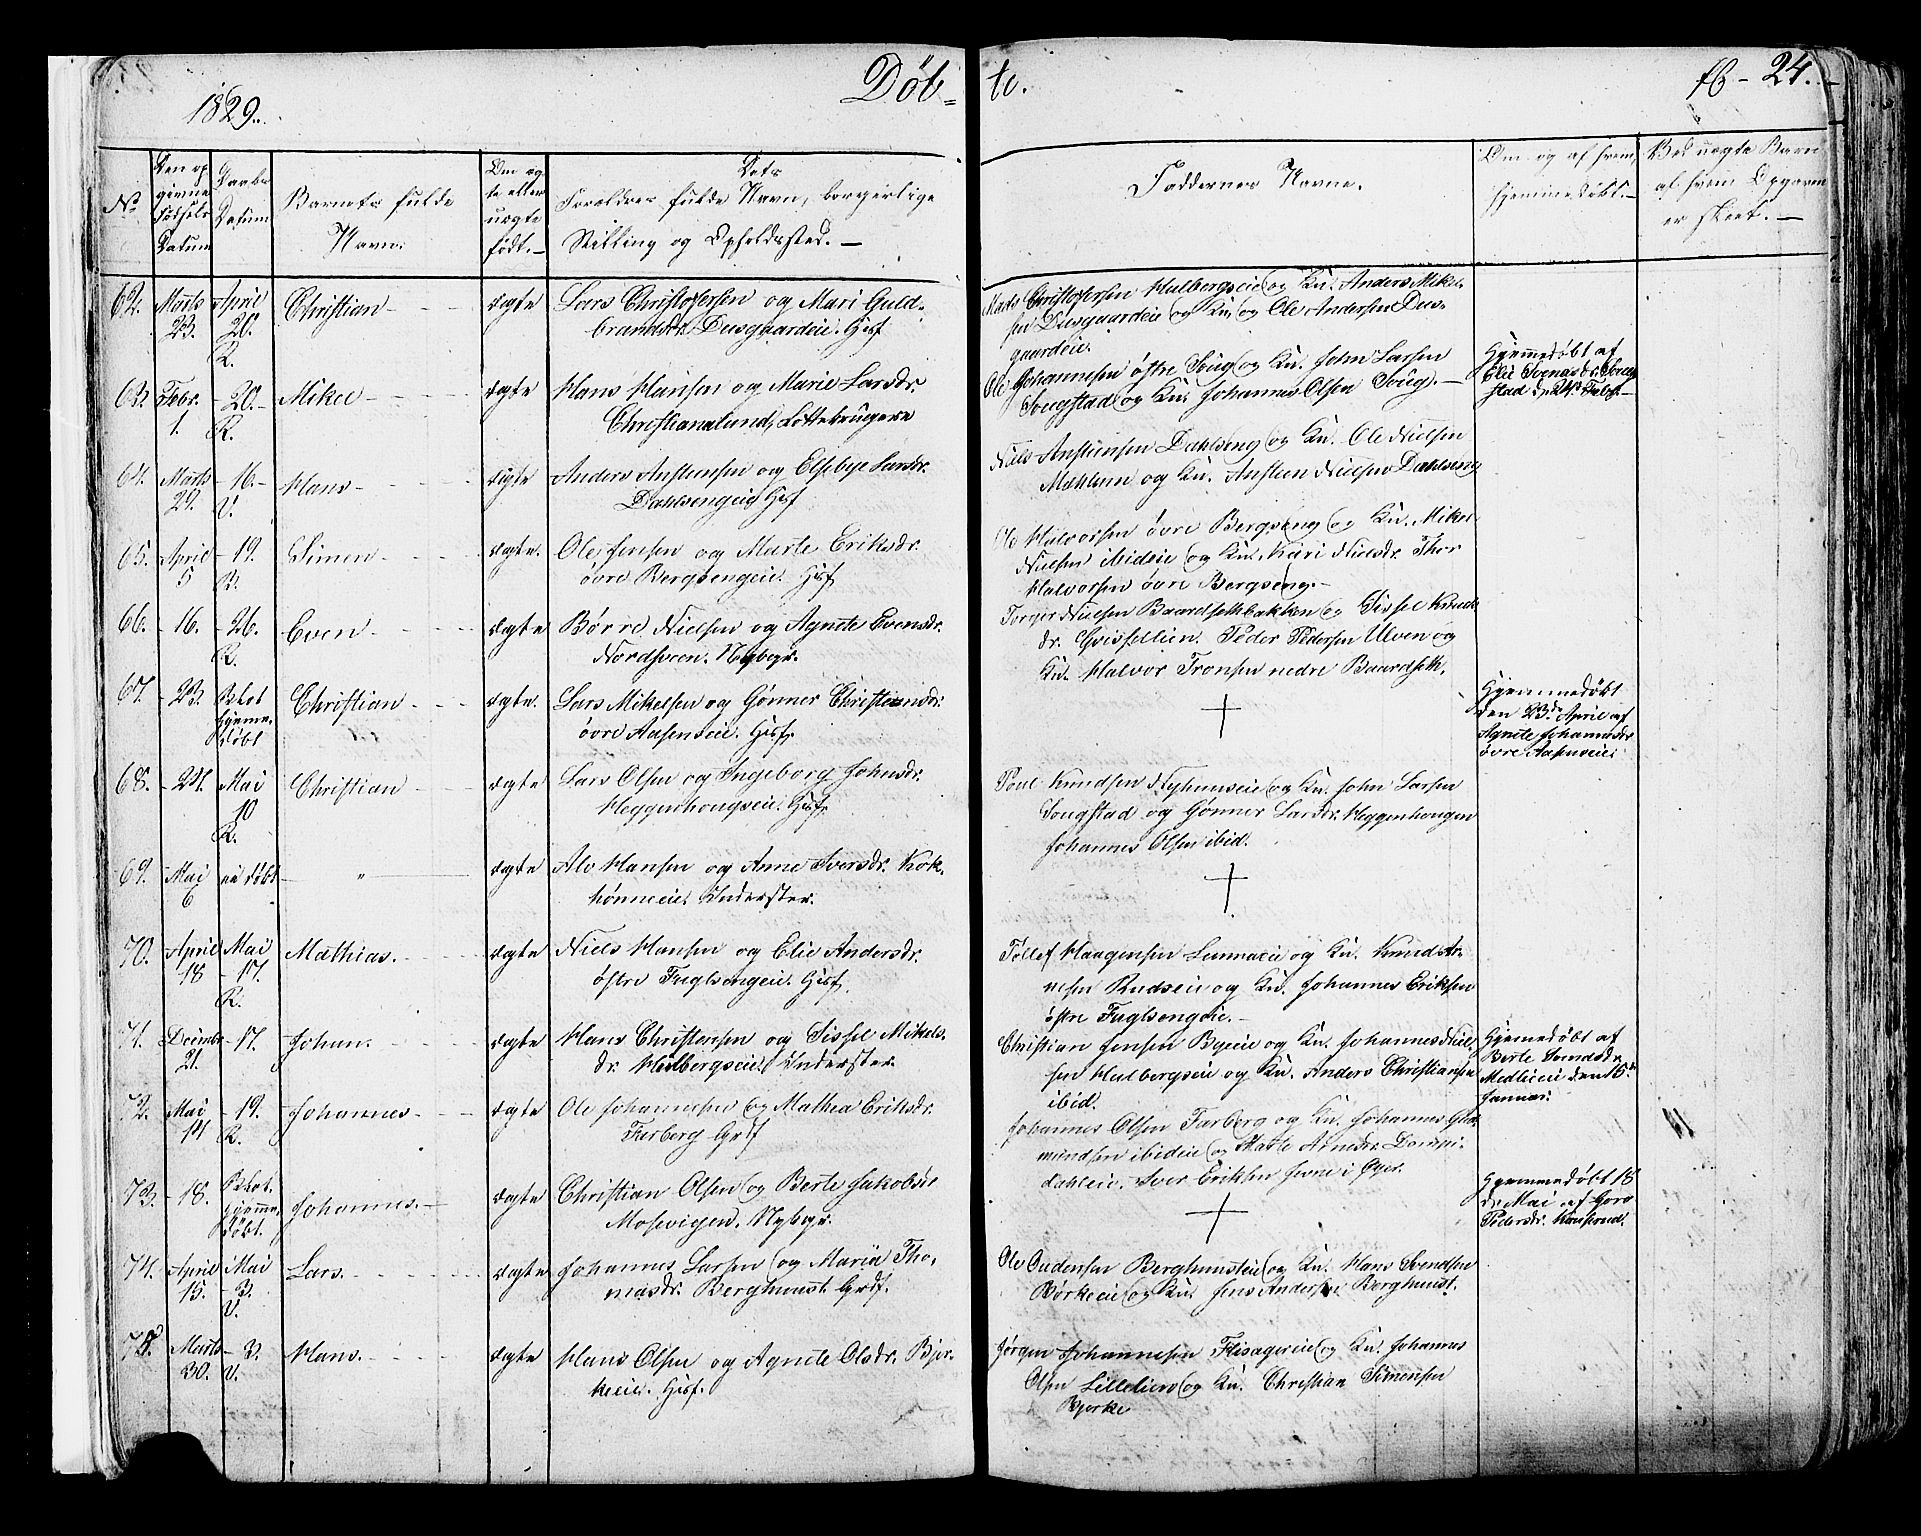 1829.
Døb-
te.
fb - 24.
No
Den op
givne
Fødsels
Datum
Daabs
Datum
Barnets fulde
Navn.
Om æg
te eller
uægte
født. -
Dets
Forældres fulde Navn, borgerlige
Stilling og Opholdssted. -
Faddernes Navne.
Om og af hvem
hjemmedøbt. -
Ved uægte Barn
af hvem Opgaven
er skeet. -
62. Marts 23. April 20. R.
Christian
ægte
Lars Christophersen og Mari Guld-
brandsdr. Duegaardeie. Husf
Mads Christophersen Halbergseie og Ku. Anders Mikel-
sen Duegaardeie og Ku, og Ole Andersen Due-
gaardeie.
63. Febr. 1. - 20. - R.
Mikel
ægte
Hans Hansen og Marie Larsdr.
Christianslund, Lottebrugere
Ole Johannesen østre Soug og Ku. John Larsen
Sougstad og Ku. Johannes Olsen Soug. -
Hjemmedøbt af
Elie Svensdr. Soug
stad d. 24. Febr. -
64. Marts 24. - 16. - V.
Hans
ægte
Anders Anstensen og Elsebye Larsdr.
Dahlsengeie Husf
Niels Anstensen Dahlseng og Ku. Ole Nielsen
Mæhlum og Ku. Ansten Nielsen Dahlseng
65. April 5 - 19. R.
Simen
ægte.
Ole Jensen og Marte Eriksdr.
øvre Bergsengeie. Husf
Ole Halvorsen øvre Bergseng og Ku. Mikel
Nielsen ibideie og Ku. Kari Nielsdr. Thor
Halvorsen øvre Bergseng. -
66. - 16. - 26. R.
Even
ægte
Børre Nielsen og Agnete Evensdr.
Nordsveen. Nybygr.
Torger Nielsen Baardsethbakken og Sissel Knuds
dr. Qvissellien. Peder Pedersen Ulven og
Ku. Halvor Tronsen nedre Baardseth.
67. - 23.
Christian
ægte.
Lars Mikelsen og Gønner Christiansdr.
øvre Aasenseie. Husf.
Hjemmedøbt
den 23de April af
Agnete Johannesdr
øvre Aasenseie.
68. - 24. Mai 10 R.
Christian
ægte
Lars Olsen og Ingeborg Johnsdr.
Heggenhougseie. Husf.
Poul Knudsen Nyhuuseie og Ku. John Larsen
Sougstad og Gønner Larsdr. Heggenhougen
Johannes Olsen ibid.
69. Mai 6 ei døbt
"
ægte
Alv Hansen og Anne Iversdr. Kok-
hønneeie. Inderster.
70. April 18 Mai - 17. R.
Mathias.
ægte
Niels Hansen og Elie Andersdr.
østre Fuglsengeie. Husf.
Tollef Haagensen Lunnaeie og Ku. Knud Ar-
nesen Rudseie og Ku. Johannes Eriksen
østre Fuglsengeie. -
71. Decembr 21. - 17.
Johan.
ægte
Hans Christensen og Sissel Mikels-
dr. Halbergseie. Inderster.
Christian Jensen Byeeie og Ku. Johannes Niel-
sen Halbergseie og Ku. Anders Christiansen
ibid.
Hjemmedøbt af
Berte
Medlieeie den 15de
Januar.
72. Mai 14 - 19. R.
Johannes
ægte
Ole Johannesen og Mathea Eriksdr.
Farberg Grdf
Johannes Olsen Farberg og Ku. Johannes Gud-
mundsen ibideie og Marte Arnesdr.
dahleie. Iver Eriksen Jevne i Øyer.
73. - 18.
Johannes.
ægte
Christian Olsen og Berte Jakobsdr
Mosevigen. Nybygr.
Hjemmedøbt 18
de Mai af Goro
Pedersdr.
74. April 15. Mai - 3. V.
Lars.
ægte
Johannes Larsen og Maria Tho-
masdr. Berghuust. Grdf.
Ole Oudensen Berghuuseie og Ku. Hans Svendsen
Børkeeie og Ku. Jens Andersen Berghuust.
75. Marts 30. - 3. V.
Hans.
ægte
Hans Olsen og Agnete Olsdr. Bjer-
keeie. Husf.
Jørgen Johannesen Flisagereie og Ku. Johannes
Olsen Lillelien og Ku. Christian Simensen
Bjerke